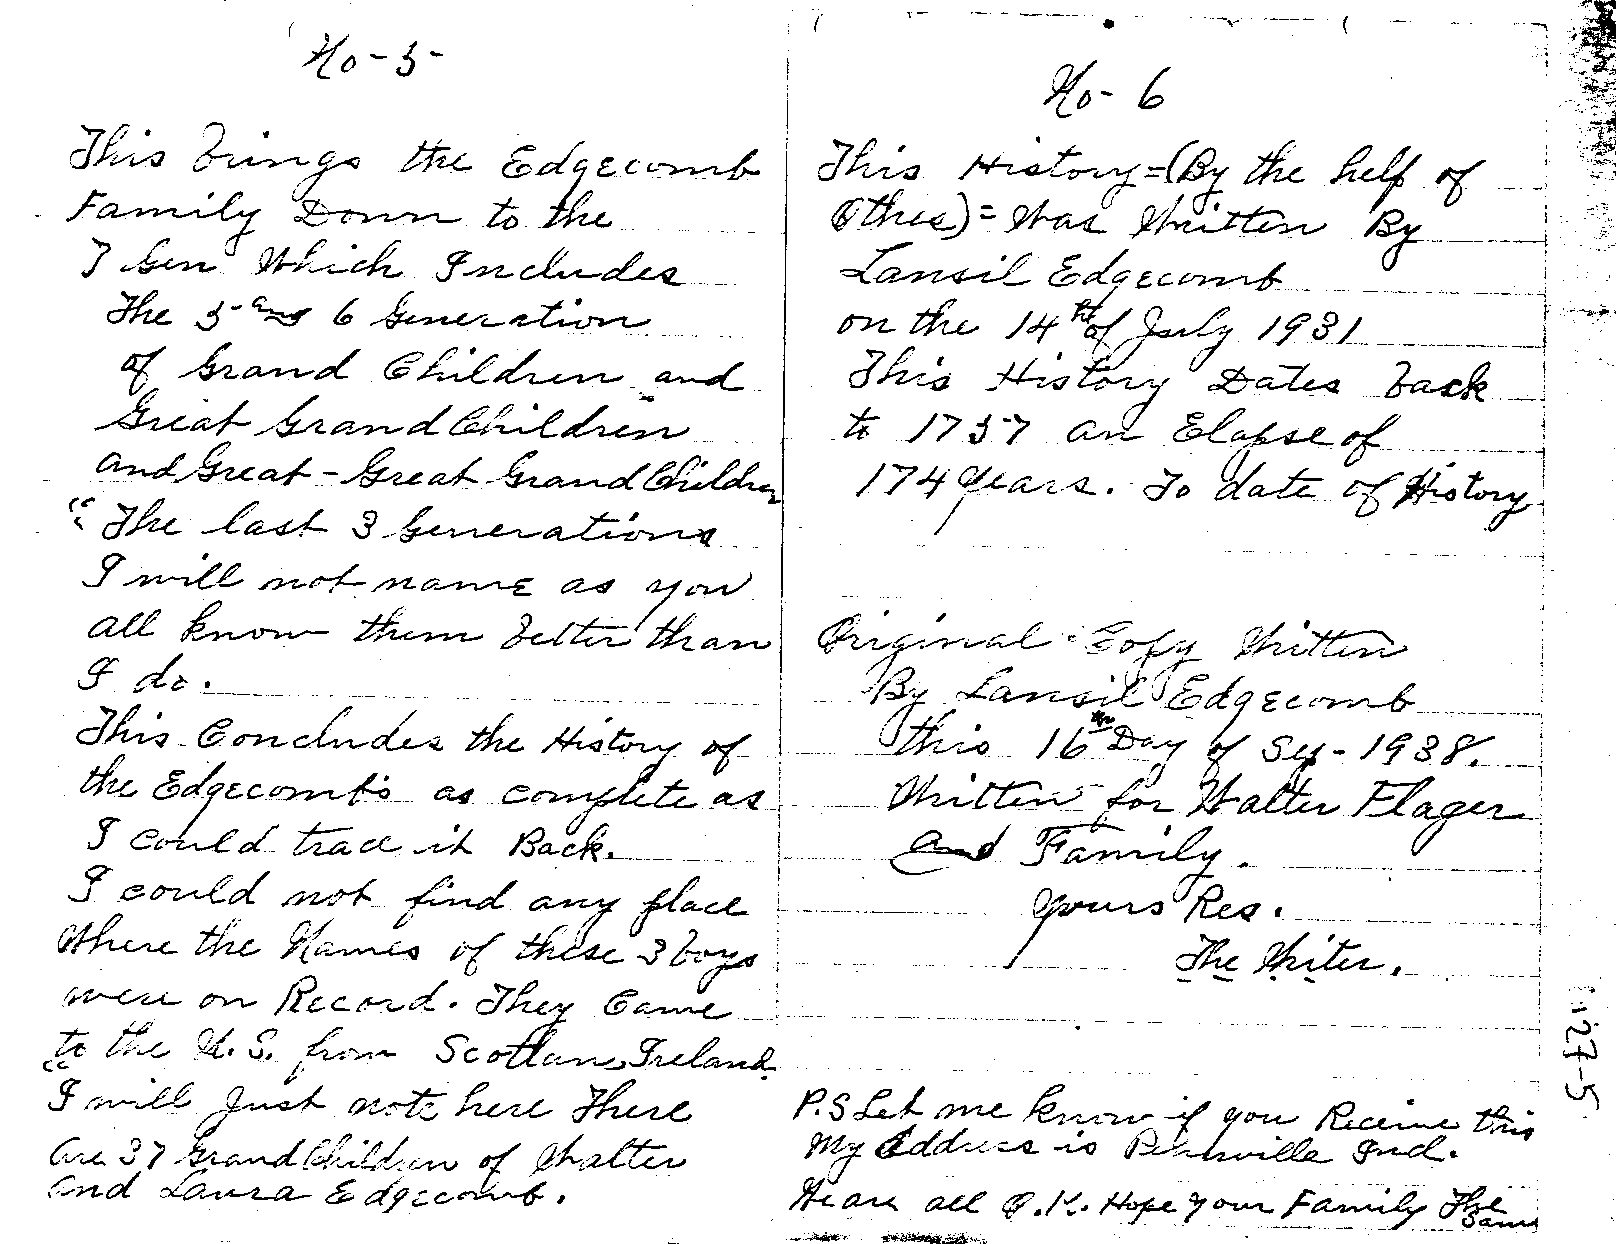 No-5-
This brings the Edgecomb
Family Down to the
7 Gen Which Includes
The 5 and 6 Generation
of Grand Children and
Great Grand Children
and Great-Great Grand Children
"The last 3 Generations
I will not name as you
all know them better than
I do.
This Concludes the History of
the Edgecomb's as complete as
I could trace it Back.
I could not find any place
Where the Names of these 3 boys
were on Record. They Came
to the U.S. from Scotlan, Ireland.
"I will Just note here There
are 37 Grand Children of Walter
and Laura Edgecomb.
No-6
This History=(By the help of
Othes)= Was Written By
Lansil Edgecomb
on the 14th of July 1931
This History Dates back
to 1757 an Elapse of
174 years. To date of History
Original Copy Written
By Lansil Edgecomb
this 16th Day of Sep-1938.
Written for Walter Flager
and Family.
Yours Res.
The Writer.
P.S Let me know if you Receive this
My Address is Pennville Ind.
We are all O.K. Hope your Family The
Same
27-5